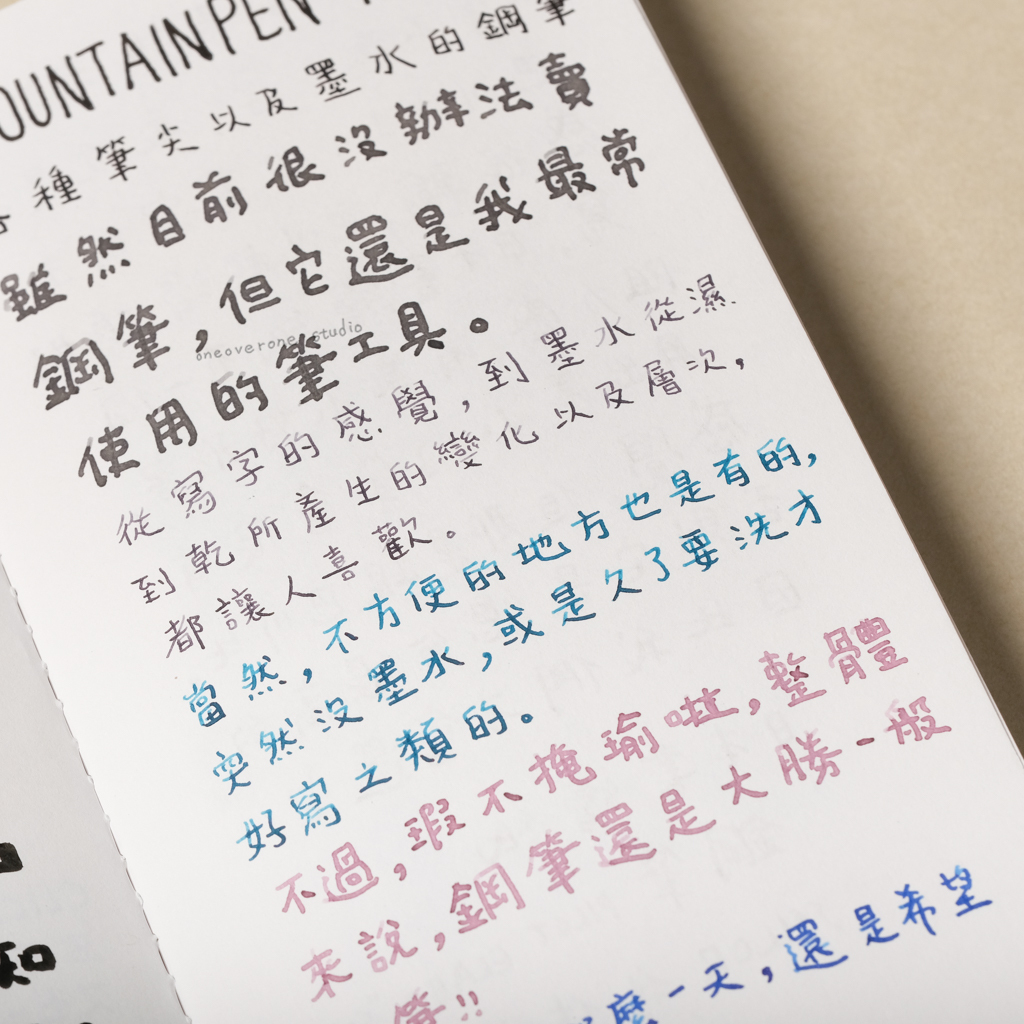 OUNTAIN PEN
種筆尖以及墨水的鋼筆
雖然目前很沒辦法賣
鋼筆,但它還是我最常
oneoverone studio
使用的筆工具。
從寫字的感覺,到墨水從濕
到乾所產生的變化以及層次,
都讓人喜歡。
當然,不方便的地方也是有的,
突然沒墨水,或是久了要洗才
好寫之類的。
不過,瑕不掩瑜啦,整體
來說,鋼筆還是大勝一般
筆!!
麼一天,還是希望
知